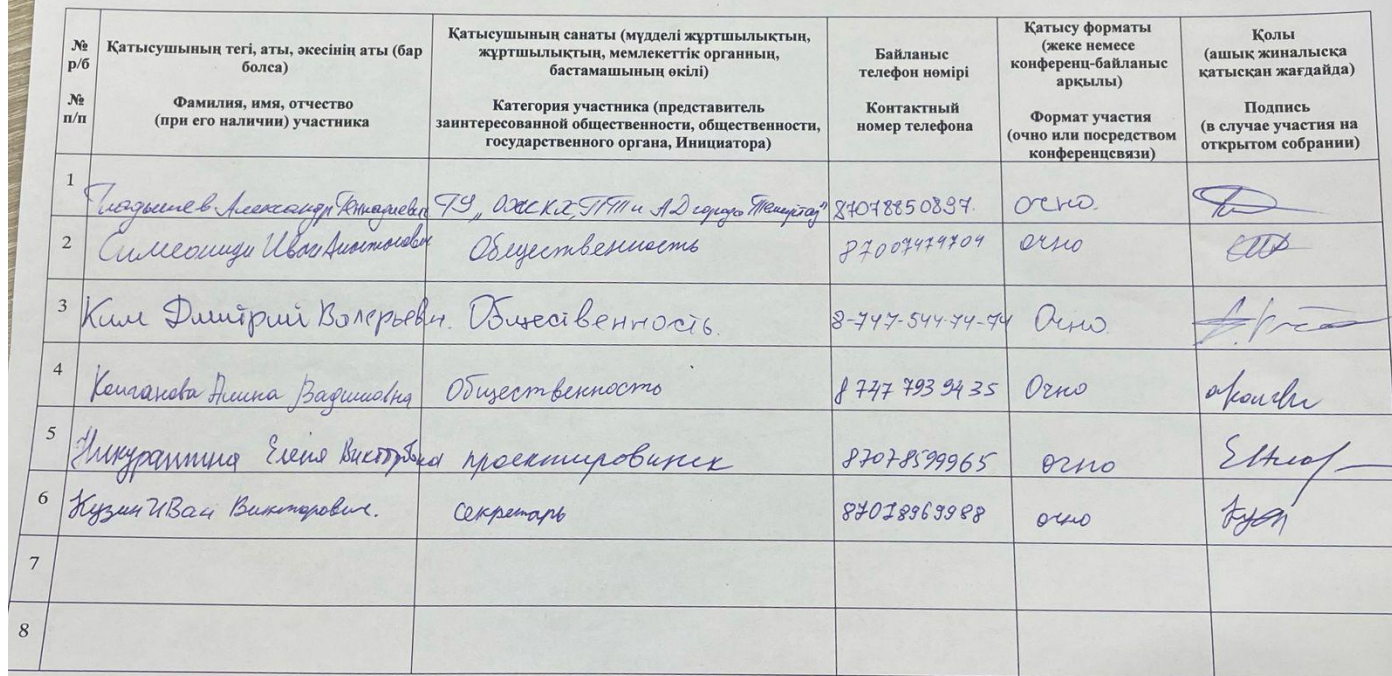 №
р/б
№
п/п
Қатысушының тегі, аты, әкесінің аты (бар
болса)
Фамилия, имя, отчество
(при его наличии) участника
Қатысушының санаты (мүдделі жұртшылықтың,
жұртшылықтың, мемлекеттік органның,
бастамашының өкілі)
Категория участника (представитель
заинтересованной общественности, общественности,
государственного органа, Инициатора)
Байланыс
телефон нөмірі
Контактный
номер телефона
Қатысу форматы
(жеке немесе
конференц-байланыс
арқылы)
Формат участия
(очно или посредством
конференцсвязи)
Қолы
(ашық жиналысқа
қатысқан жағдайда)
Подпись
(в случае участия на
открытом собрании)
1
Гладышев Александр Геннадиевич ГУ „ОЖКХ, ПТ и АД города Темиртау" 87078850897. очно.
2
Симеониди Иван Общественность 87007474704 очно
3
Ким Дмитрий Валерьевич. Общественность. 8-747-544-74-74 Очно.
4
Вадимовна Общественность 8 747 793 94 35 Очно
5
Елена Викторовна проектировщик 87078599965 очно
6
Кузин Иван Викторович. секретарь 87078969988 очно
7
8